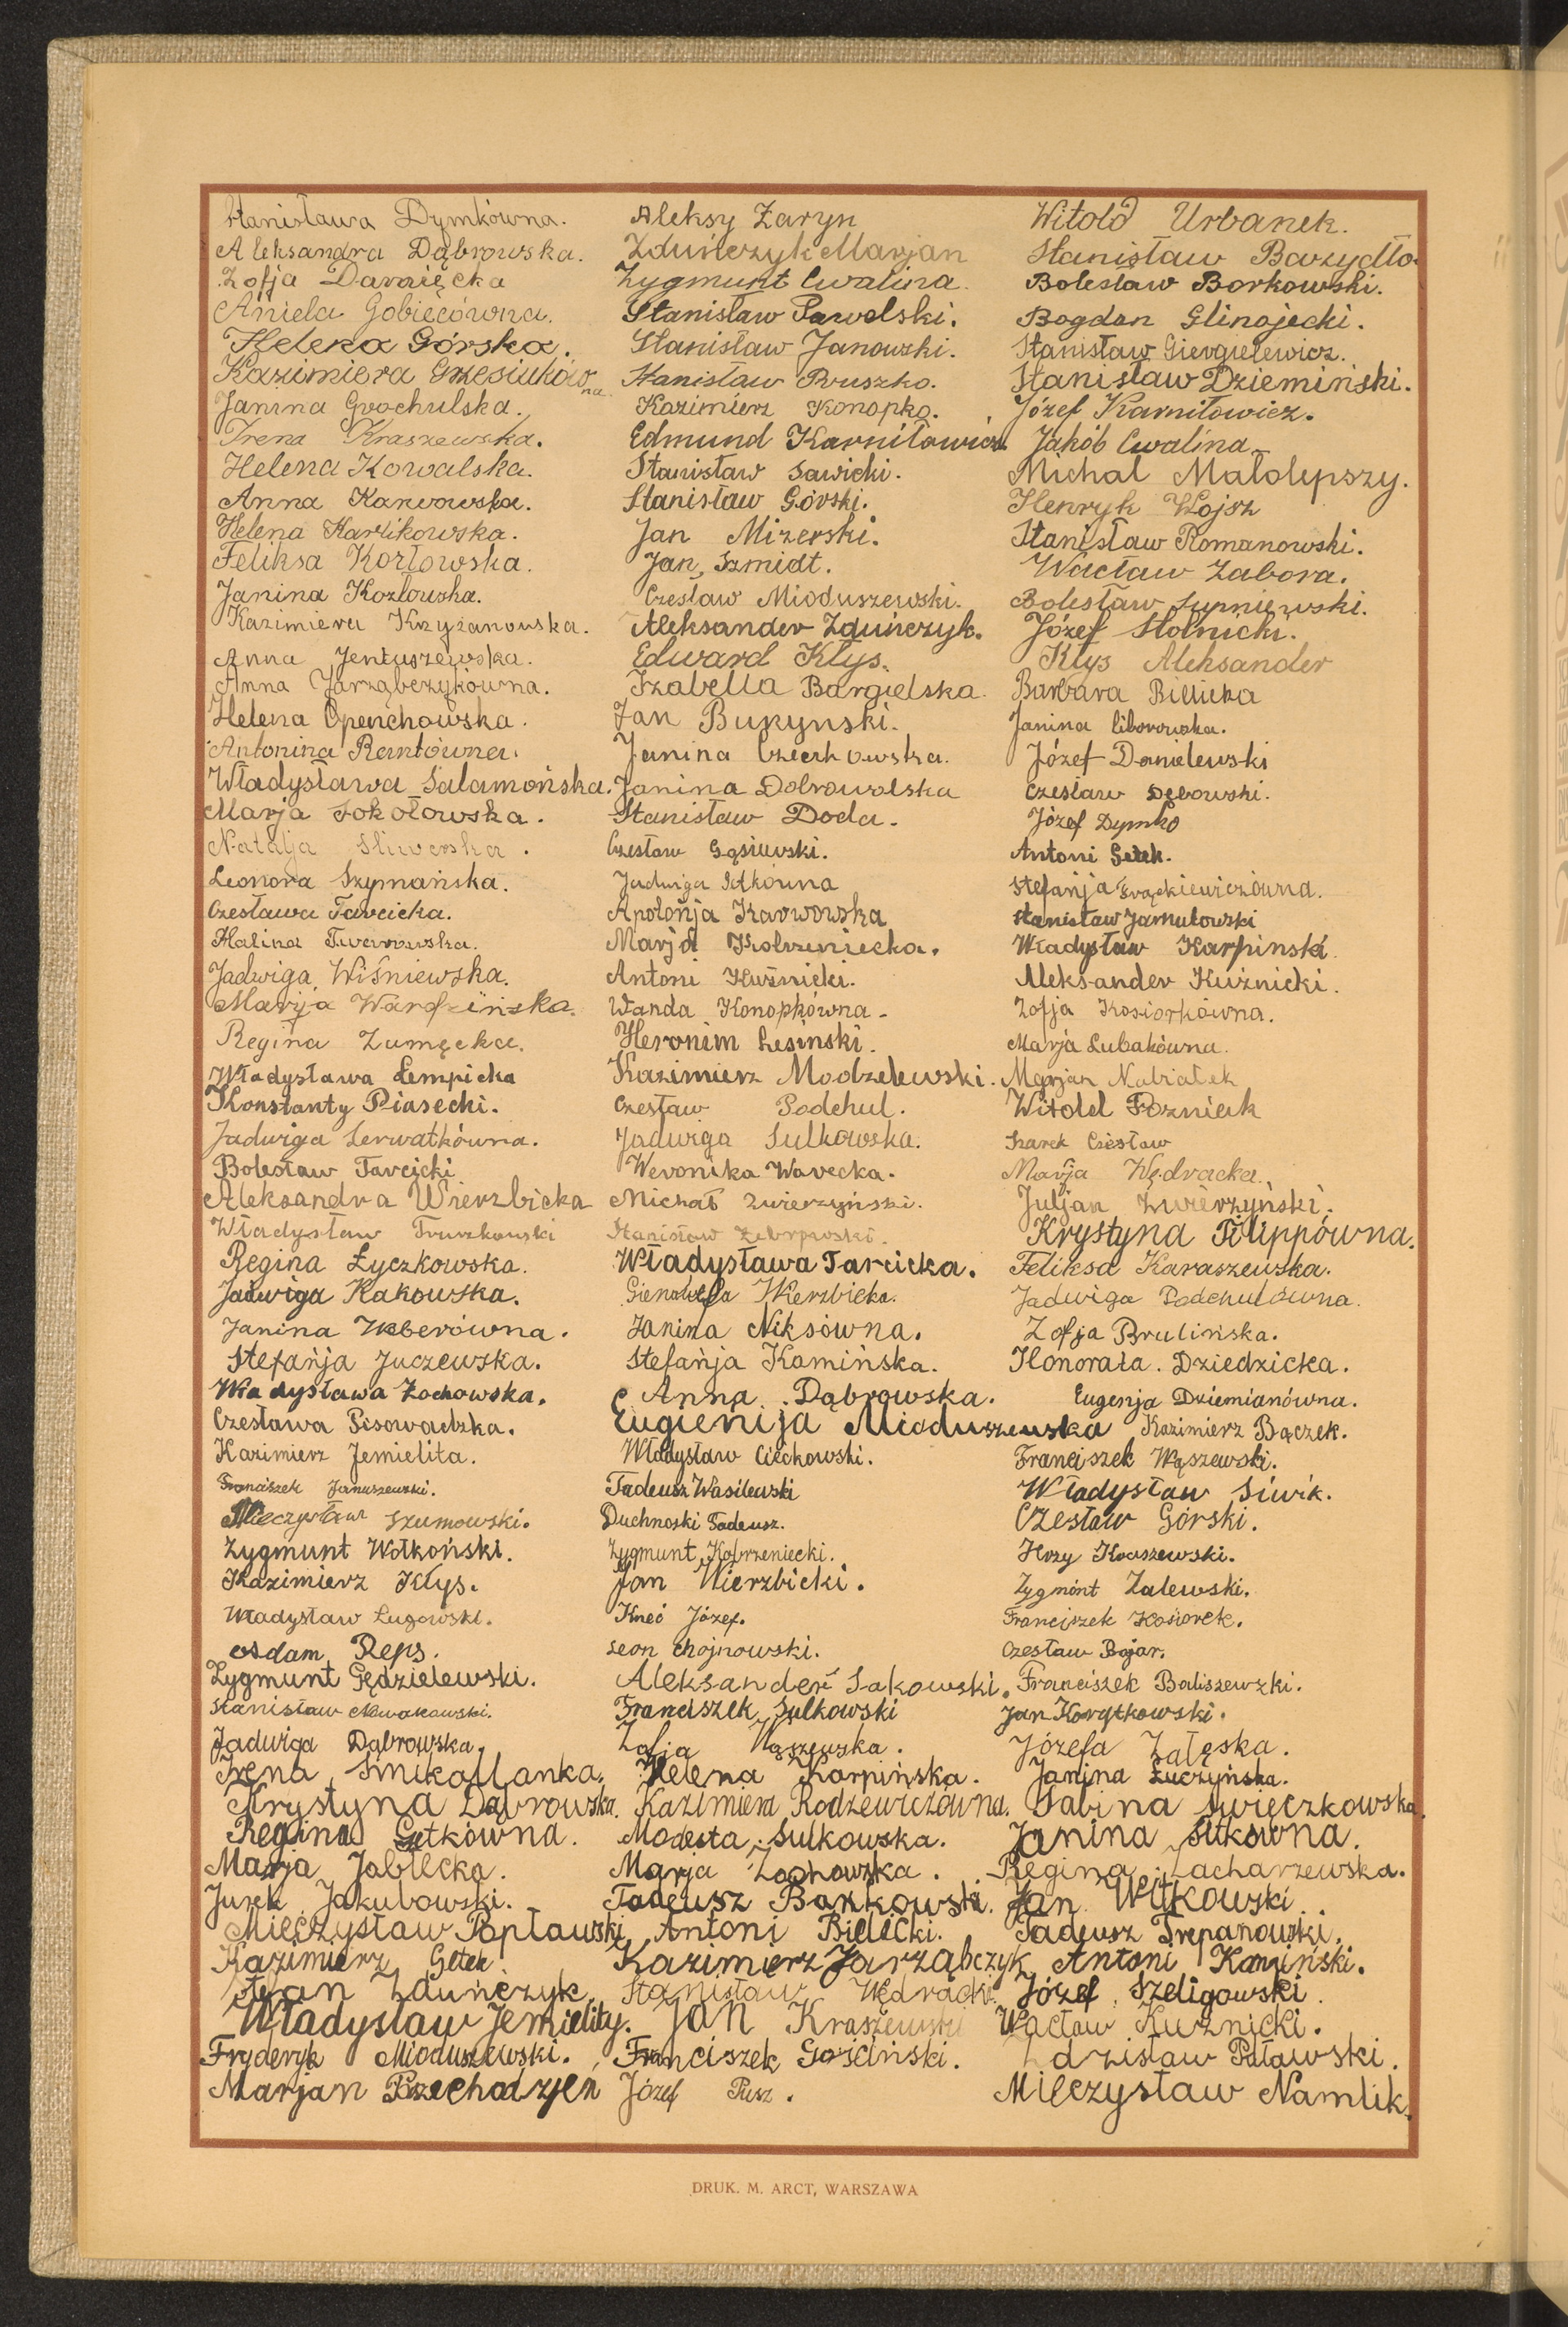 Stanisława Dymkówna.
Aleksandra Dąbrowska.
Zofja Darnięcka
Aniela Gobiecówna.
Helena Górska.
Kazimiera Grzesiukówna.
Janina Grochulska.
Irena Kraszewska.
Helena Kowalska.
Anna Karwowska.
Helena Kartikowska.
Feliksa Kozłowska.
Janina Kozłowska.
Kazimiera Krzyżanowska.
Anna Jentuszewska.
Anna Jarząbczykówna.
Helena Openchowska.
Antonina Remtówna.
Władysława Salamońska.
Marja Sokołowska.
Natalja Sliwerska.
Leonora Szymańska.
Czesława Tarcicka.
Halina Twarowska.
Jadwiga Wiśniewska.
Marja Wardzińska.
Regina Zumęcka.
Władysława Łempicka
Konstanty Piasecki.
Jadwiga Serwatkówna.
Bolesław Tarcicki
Aleksandra Wierzbicka
Władysław Truszkowski
Regina Łyczkowska.
Jadwiga Kakowska.
Janina Weberówna.
Stefańja Juczewska.
Władysława Żochowska.
Czesława Pisowadzka.
Kazimierz Jemielita.
Franciszek Januszewski.
Mieczysław Szumowski.
Zygmunt Wołkoński.
Kazimierz Kłys.
Władysław Ługowski.
Adam Reps.
Zygmunt Gędzielewski.
Stanisław Nowakowski.
Jadwiga Dąbrowska.
Irena Smikallanka.
Krystyna Dąbrowska.
Regina Getkówna.
Marja Jabłecka.
Jurek Jakubowski.
Mieczysław Popławski
Kazimierz Getek.
Stefan Zduńczyk.
Władysław Jemielity.
Fryderyk Mioduszewski.
Marjan Przechodzjen
Aleksy Żaryn
Zduńczyk Marjan
Zygmunt Cwalina.
Stanisław Pawelski.
Stanisław Janowski.
Stanisław Pruszko.
Kazimierz Konopko.
Edmund Karniłowicz.
Stanisław Sawicki.
Stanisław Górski.
Jan Mizerski.
Jan Szmidt.
Czesław Mioduszewski.
Aleksander Zduńczyk.
Edward Kłys.
Izabella Bargielska.
Jan Bukynski.
Janina Czechowska.
Janina Dobrowolska
Stanisław Doda.
Czesław Gąsiewski.
Jadwiga Iłkówna
Apolońja Karwowska
Marja Kobrzeniecka.
Antoni Kuźnicki.
Wanda Konopkówna.
Heronim Lesinski.
Kazimierz Modzelewski.
Czesław Podehul.
Jadwiga Sulkowska.
Weronika Warecka.
Michał Zwierzyński.
Stanisław Żebrowski.
Władysława Tarcicka.
Gienowefa Wierzbicka.
Janina Niksówna.
Stefańja Kamińska.
Anna Dąbrowska.
Eugienija Mioduszewska
Władysław Ciechowski.
Tadeusz Wasilewski
Duchnoski Tadeusz.
Zygmunt Kobrzeniecki.
Jan Wierzbicki.
Kneć Józef.
Leon Chojnowski.
Aleksander Sakowski.
Franciszek Sulkowski
Zofja Wąszewska.
Helena Karpińska.
Kazimiera Rodzewiczówna.
Modesta Sulkowska.
Marja Żochowska.
Tadeusz Bańkowski.
Antoni Bielicki.
Kazimierz Jarząbczyk
Stanisław Wędracki.
Jan Kraszewski
Franciszek Gościński.
Józef Pusz.
Witold Urbanek.
Stanisław Barzydło.
Bolesław Borkowski.
Bogdan Glinojecki.
Stanisław Giergielewicz.
Stanisław Dziemiński.
Józef Karniłowicz.
Jakób Cwalina.
Michał Małolepszy.
Henryk Wojsz
Stanisław Romanowski.
Wacław Zabora.
Bolesław Supniewski.
Józef Stolnicki.
Kłys Aleksander
Barbara Bielicka
Janina Ciborowska.
Józef Danielewski
Czesław Dębowski.
Józef Dymko
Antoni Getek.
Stefańja Frąckiewiczówna.
Stanisław Jamułowski
Władysław Karpinski.
Aleksander Kuźnicki.
Zofja Kosiorkówna.
Marja Lubakówna.
Marjan Nabiałek
Witold Pozniak
Szarek Czesław
Marja Wędracka.
Juljan Zwierzyński.
Krystyna Filippówna.
Feliksa Karaszewska.
Jadwiga Podchulówna.
Zofja Brulińska.
Honorata Dziedzicka.
Eugenja Dziemianówna.
Kazimierz Bączek.
Franciszek Wąszewski.
Władysław Siwik.
Czesław Górski.
Jerzy Kraszewski.
Zygmónt Zalewski.
Franciszek Kosiorek.
Czesław Bojar.
Franciszek Baliszewski.
Jan Korytkowski.
Józefa Załęska.
Janina Łuczyńska.
Sabina Swięczkowska.
Janina Iłkówna.
Regina Zacharzewska.
Jan Witkowski.
Tadeusz Trepanowski.
Antoni Kamiński.
Józef Szeligowski.
Wacław Kuźnicki.
Zdzisław Puławski.
Mieczysław Namlik.
DRUK. M. ARCT, WARSZAWA